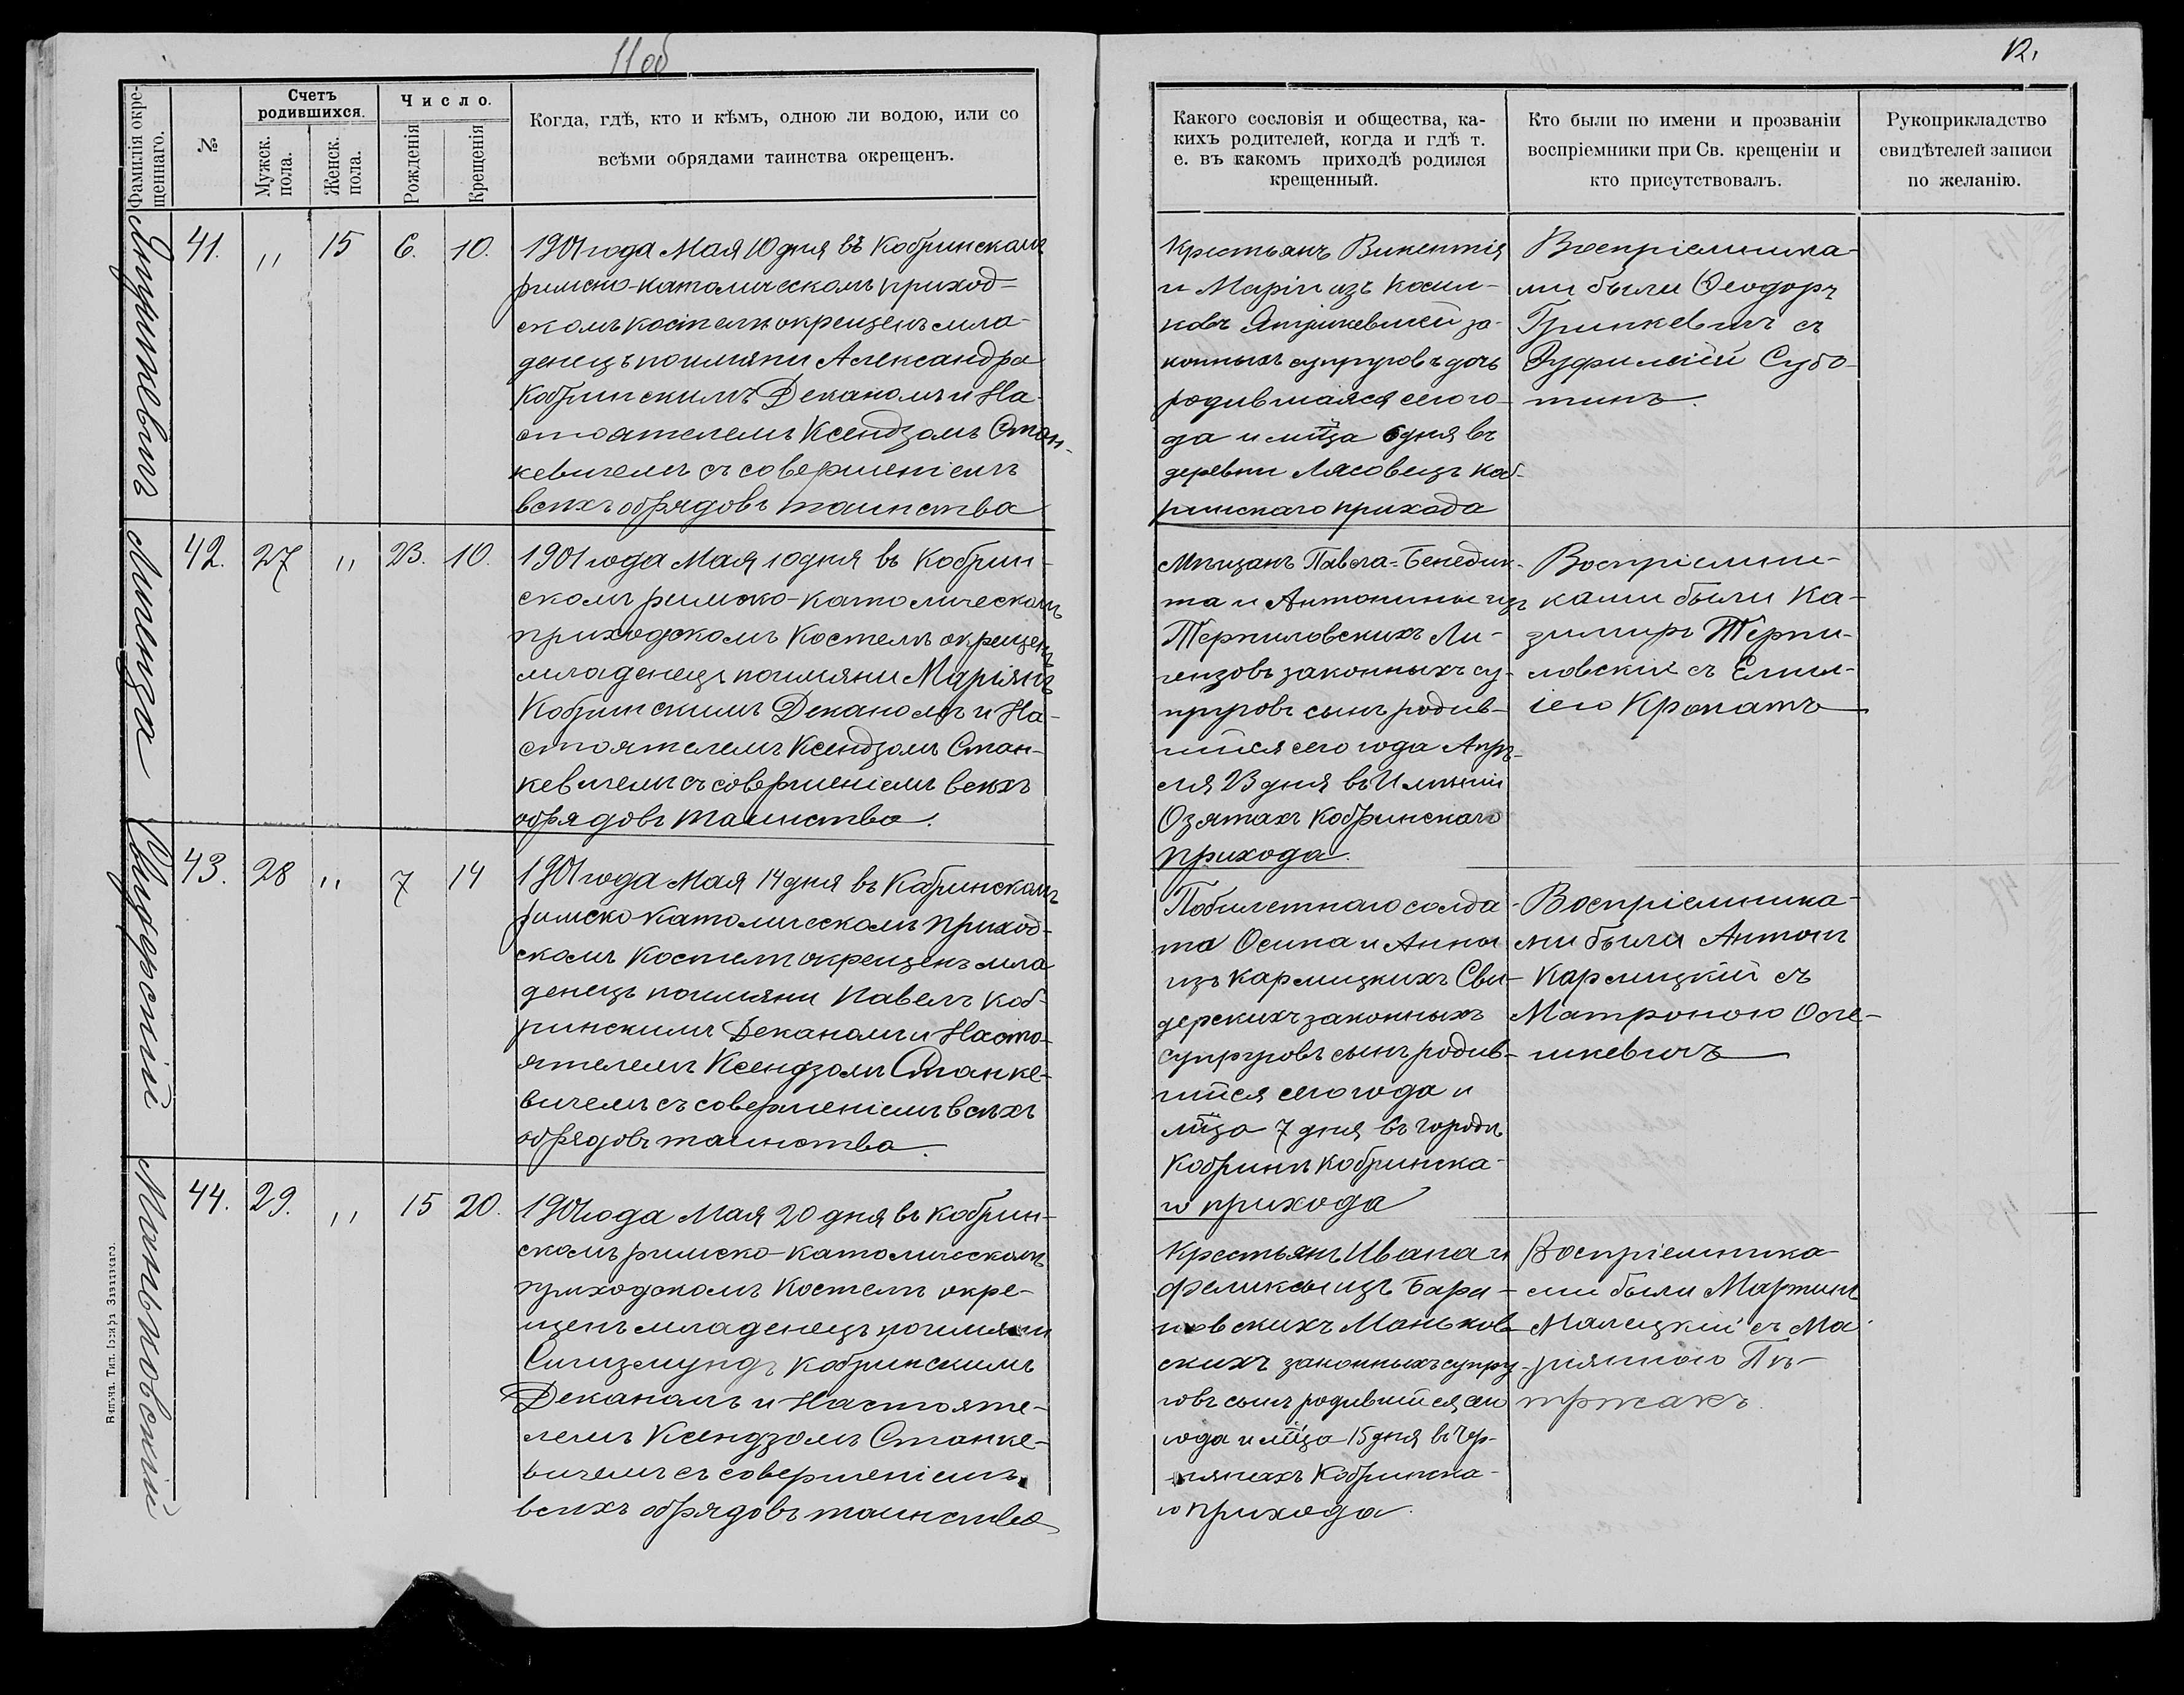 11 об
12.
Фамилія окре-
щеннаго.
№
Счетъ
родившихся.
Мужск.
пола.
Женск.
пола.
Число.
Рожденія
Крещенія
Когда, гдѣ, кто и кѣмъ, одною ли водою, или со
всѣми обрядами таинства окрещенъ.
Какого сословія и общества, ка-
кихъ родителей, когда и гдѣ т.
е. въ какомъ приходѣ родился
крещенный.
Кто были по имени и прозванію
воспріемники при Св. крещеніи и
кто присутствовалъ.
Рукоприкладство
свидѣтелей записи
по желанію.
41. " 15 6. 10.
1901 года Мая 10 дня въ Кобринскомъ
римско-католическомъ приход=
скомъ костелѣ окрещенъ мла-
денецъ по имяни Александра
Кобринскимъ Деканомъ и На-
стоятелемъ Ксендзомъ Стан-
кевичемъ съ совершеніемъ
всѣхъ обрядовъ таинства
Крестьянъ Викентія
и Маріи изъ
ковъ за-
конныхъ супруговъ дочь
родившаяся сего го-
да и мѣца 6 дня въ
деревни Лясовецъ Коб-
ринскаго прихода
Воспріемника-
ми были Ѳеодоръ
Гринкевичъ съ
Субо-
тинъ.
Липенза
42. 27 " 23. 10.
1901 года Мая 10 дня въ Кобрин-
скомъ римско-католическомъ
приходскомъ Костелѣ окрещенъ
младенецъ по имяни Маріянъ
Кобринскимъ Деканомъ и На-
стоятелемъ Ксендзомъ Стан-
кевичемъ съ совершеніемъ всѣхъ
обрядовъ таинства.
Мѣщанъ Павла=Бенедик-
та и Антонины изъ
Терпиловскихъ Ли-
пензовъ законныхъ су-
пруговъ сынъ родив-
шійся сего года Апрѣ-
ля 23 дня въ Имѣніи
Озятахъ Кобринскаго
прихода.
Воспріемни-
ками были Ка-
зимиръ Терпи-
ловскій съ Емил-
іею Кропатъ
Свидерскій
43. 28 " 7 14
1901 года Мая 14 дня въ Кобринскомъ
римско католическомъ приход-
скомъ Костелѣ окрещенъ мла
денецъ по имяни Павелъ Коб-
ринскимъ Деканомъ и Насто-
ятелемъ Ксендзомъ Станке-
вичемъ съ совершеніемъ всѣхъ
обрядовъ таинства.
Побилетнаго солда-
та Осипа и Анны
изъ Кармицкихъ Сви-
дерскихъ законныхъ
супруговъ сынъ родив-
шійся сего года и
мѣца 7 дня въ городѣ
Кобринѣ Кобринска-
го прихода
Воспріемника-
ми были Антонъ
Кармицкій съ
Матроною Осте-
шкевичъ
Маньковскій
44. 29. " 15 20.
1901 года Мая 20 дня въ Кобрин-
скомъ римско-католическомъ
приходскомъ Костелѣ окре-
щенъ младенецъ по имяни
Сигизмундъ Кобринскимъ
Деканомъ и Настояте-
лемъ Ксендзомъ Станке-
вичемъ съ совершеніемъ
всѣхъ обрядовъ таинства
Крестьянъ Ивана и
Феликсы изъ Бара-
новскихъ Маньков-
скихъ законныхъ супру-
говъ сынъ родившійся сего
года и мѣца 15 дня въ Чер-
Кобринска-
го прихода.
Воспріемника-
ми были Мартинъ
Малецкій съ Ма-
ріянною Пѣ-
тржакъ.
Вильна. Тип. Іосифа Завадзкаго.